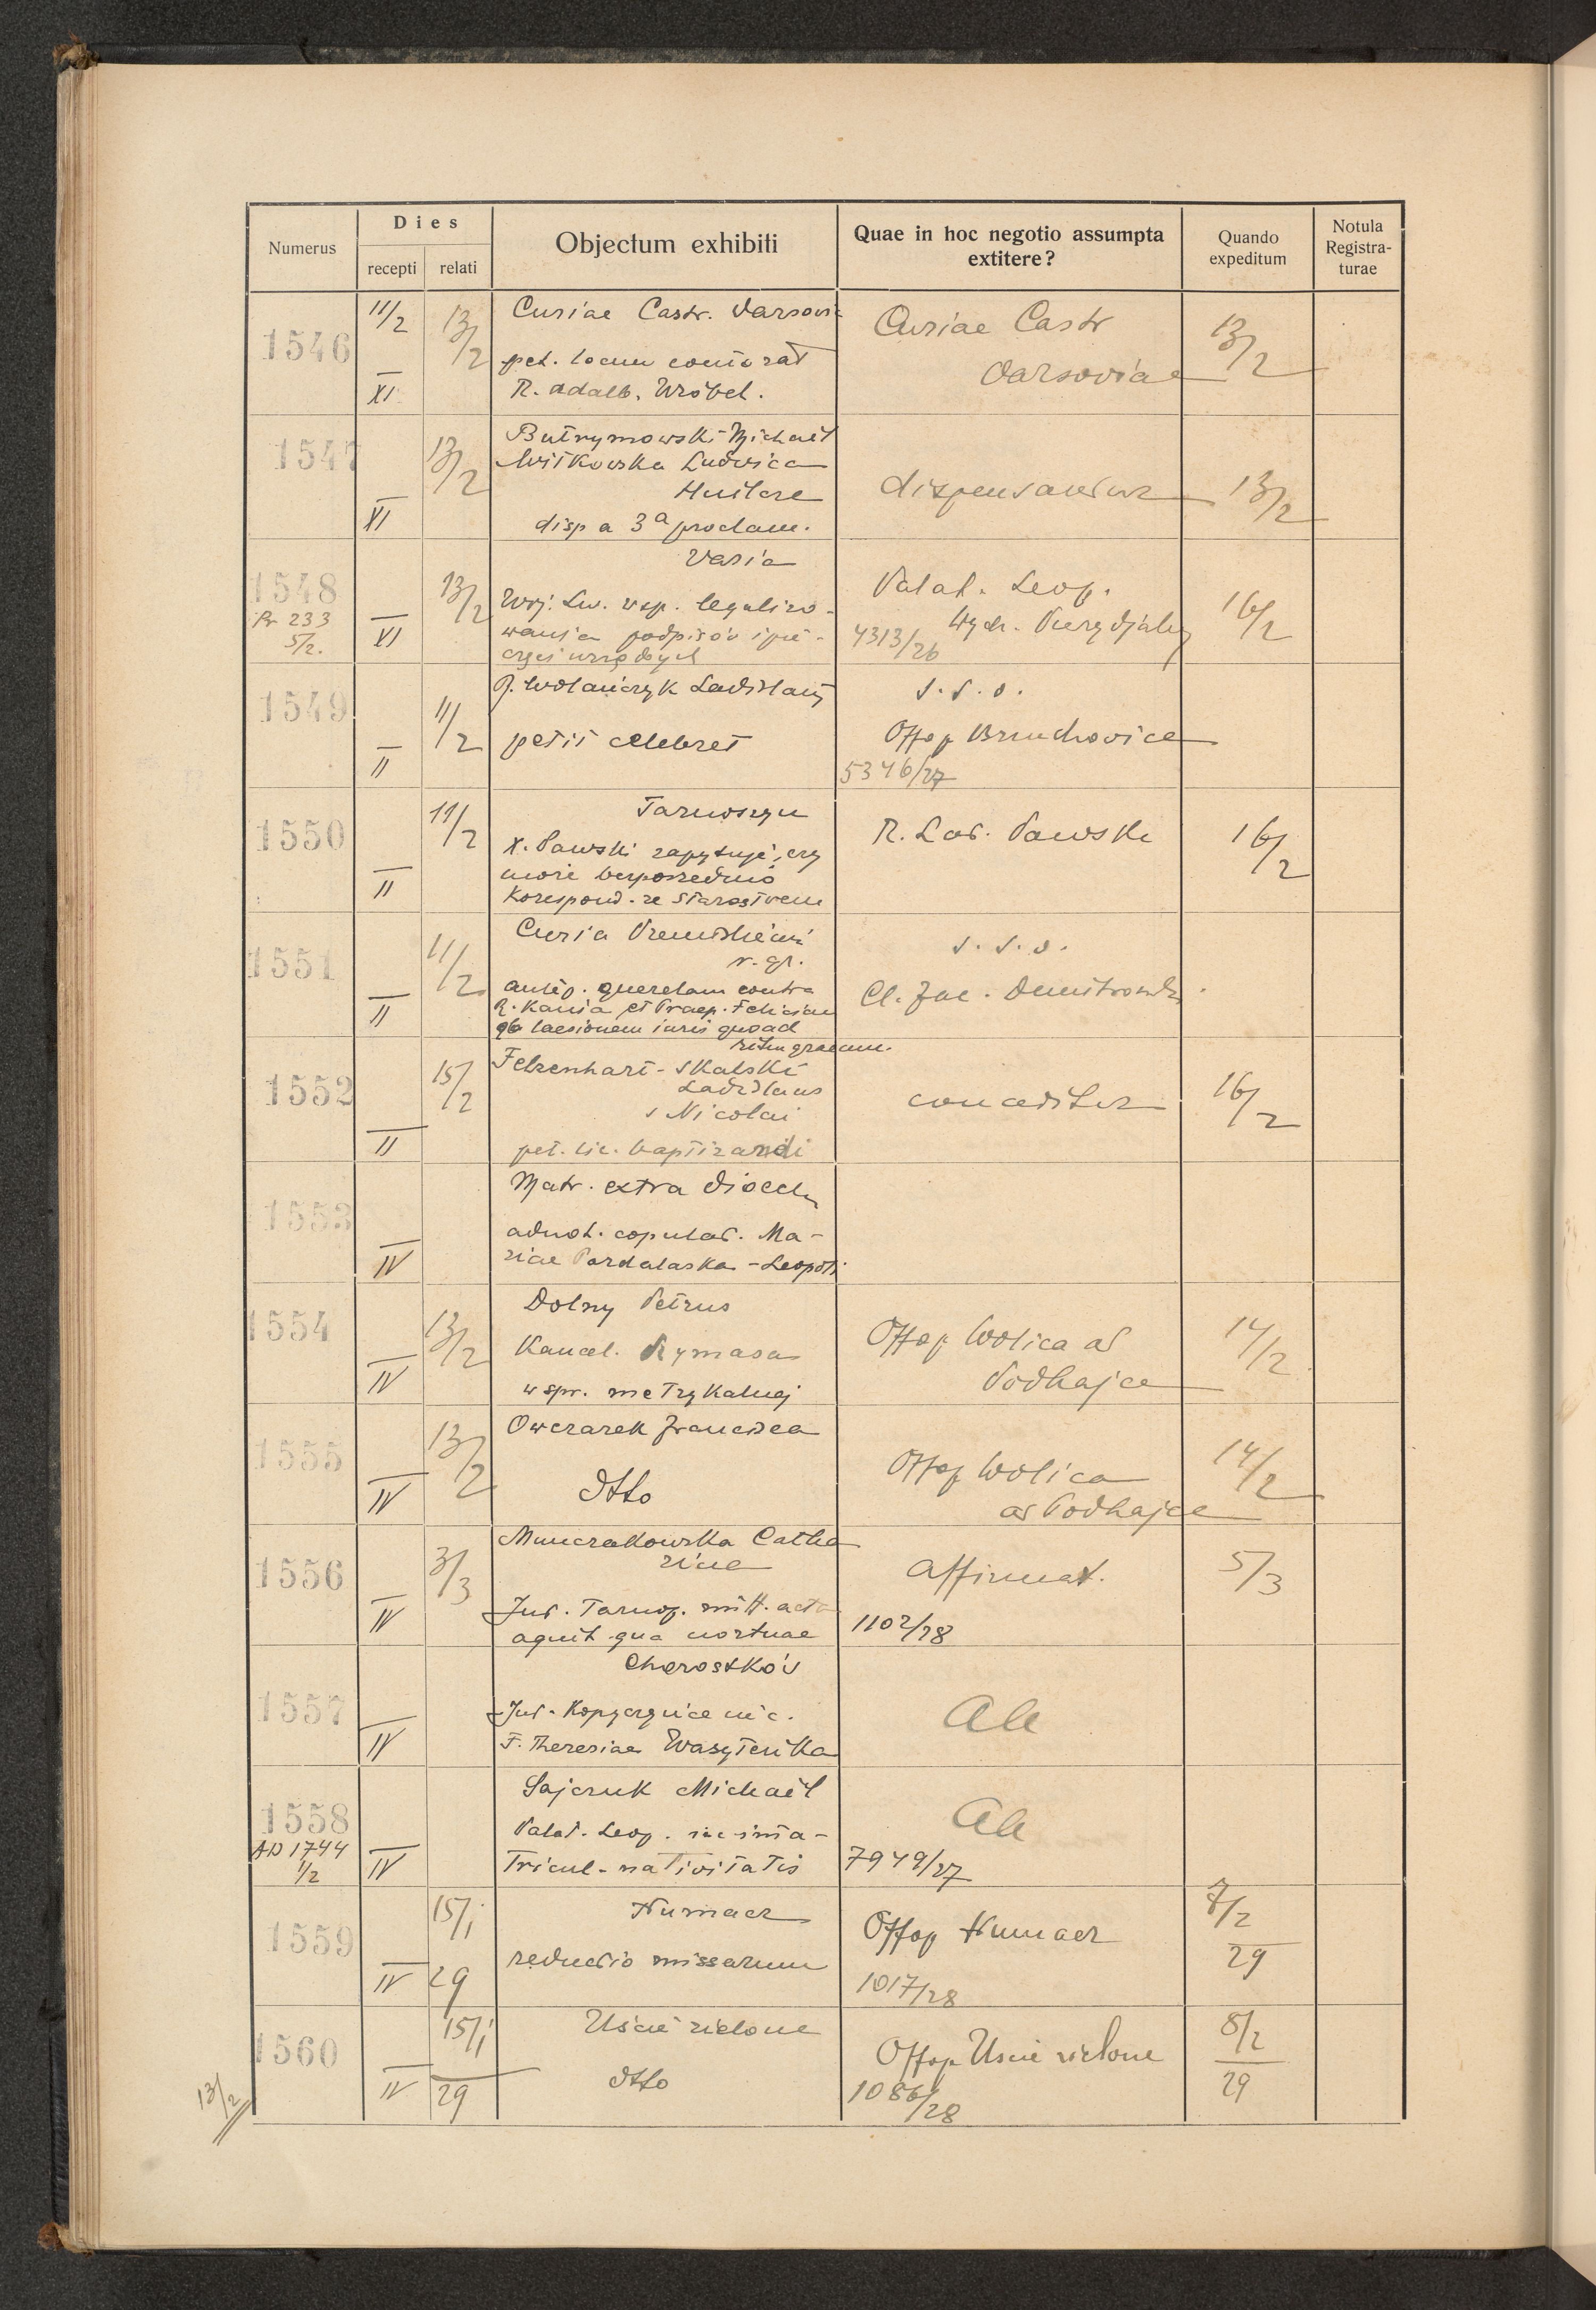 Numerus
Dies
recepti
relati
Objectum exhibiti
Quae in hoc negotio assumpta extitere?
Quando expeditum
Notula Registra-turae
1546
11/2
XI
13/2
Curiae Castr. Varsovi
pet. locum comorat
R. Adalb. Wróbel.
Curiae Castr
Varsoviae
13/2
1547
XI
13/2
Butrymowski Michaël
Witkowska Ludovica
disp a 3a proclam.
dispensantur
13/2
1548
Pr 233
5/2.
XI
13/2
Varia
Woj. Lw. wsp. legalizo-
wania podpisów i pie-
częci urzędnych
Palat. Leop.
4313/26
16/2
1549
II
11/2
R. Wołańczyk Ladislaus
petit celebret
s. s. o.
Offop Bruchovice
5346/27
1550
II
11/2
X. Pawski zapytuje, czy
może bezpośrednio
Korespond. ze Starostwem
R. Lad. Pawski
16/2
1551
II
11/2
Curia
r. gr.
querelam contra
R. Kania et Praep. Felician
ob laesionem iuris quoad
ritum graecum.
s. s. o.
Cl. Jac.
1552
II
15/2
Felzenhart-Skalski
Ladislaus
s Nicolai
pet. lic. baptizandi
conceditur
16/2
1553
IV
Matr. extra dioec
adnot. copulat. Ma-
riae Pardalaska - Leopoli
1554
IV
13/2
Dolny Petrus
Kancel. Rymasa
w spr. metrykalnej
Offop Wolica ad
Podhajce
14/2
1555
IV
13/2
Owczarek Francisca
dtto
Offop Wolica
ad Podhajce
14/2
1556
IV
3/3
Catha
rina
Jud. Tarnop. mitt. acta
agnit qua mortuae
affirmat.
1102/28
5/3
1557
IV
Chorostków
Jud. Kopyczyńce
F. Theresiae
Ala
1558
AD 1744
1/2
IV
Sajczuk Michaël
Palat. Leop.
tricul-nativitatis
Ala
7949/27
1559
IV
15/1
29
reductio missarum
1017/28
7/2
29
1560
IV
15/1
29
Uście zielone
dtto
Offop Uście zielone
1086/28
8/2
29
13/2